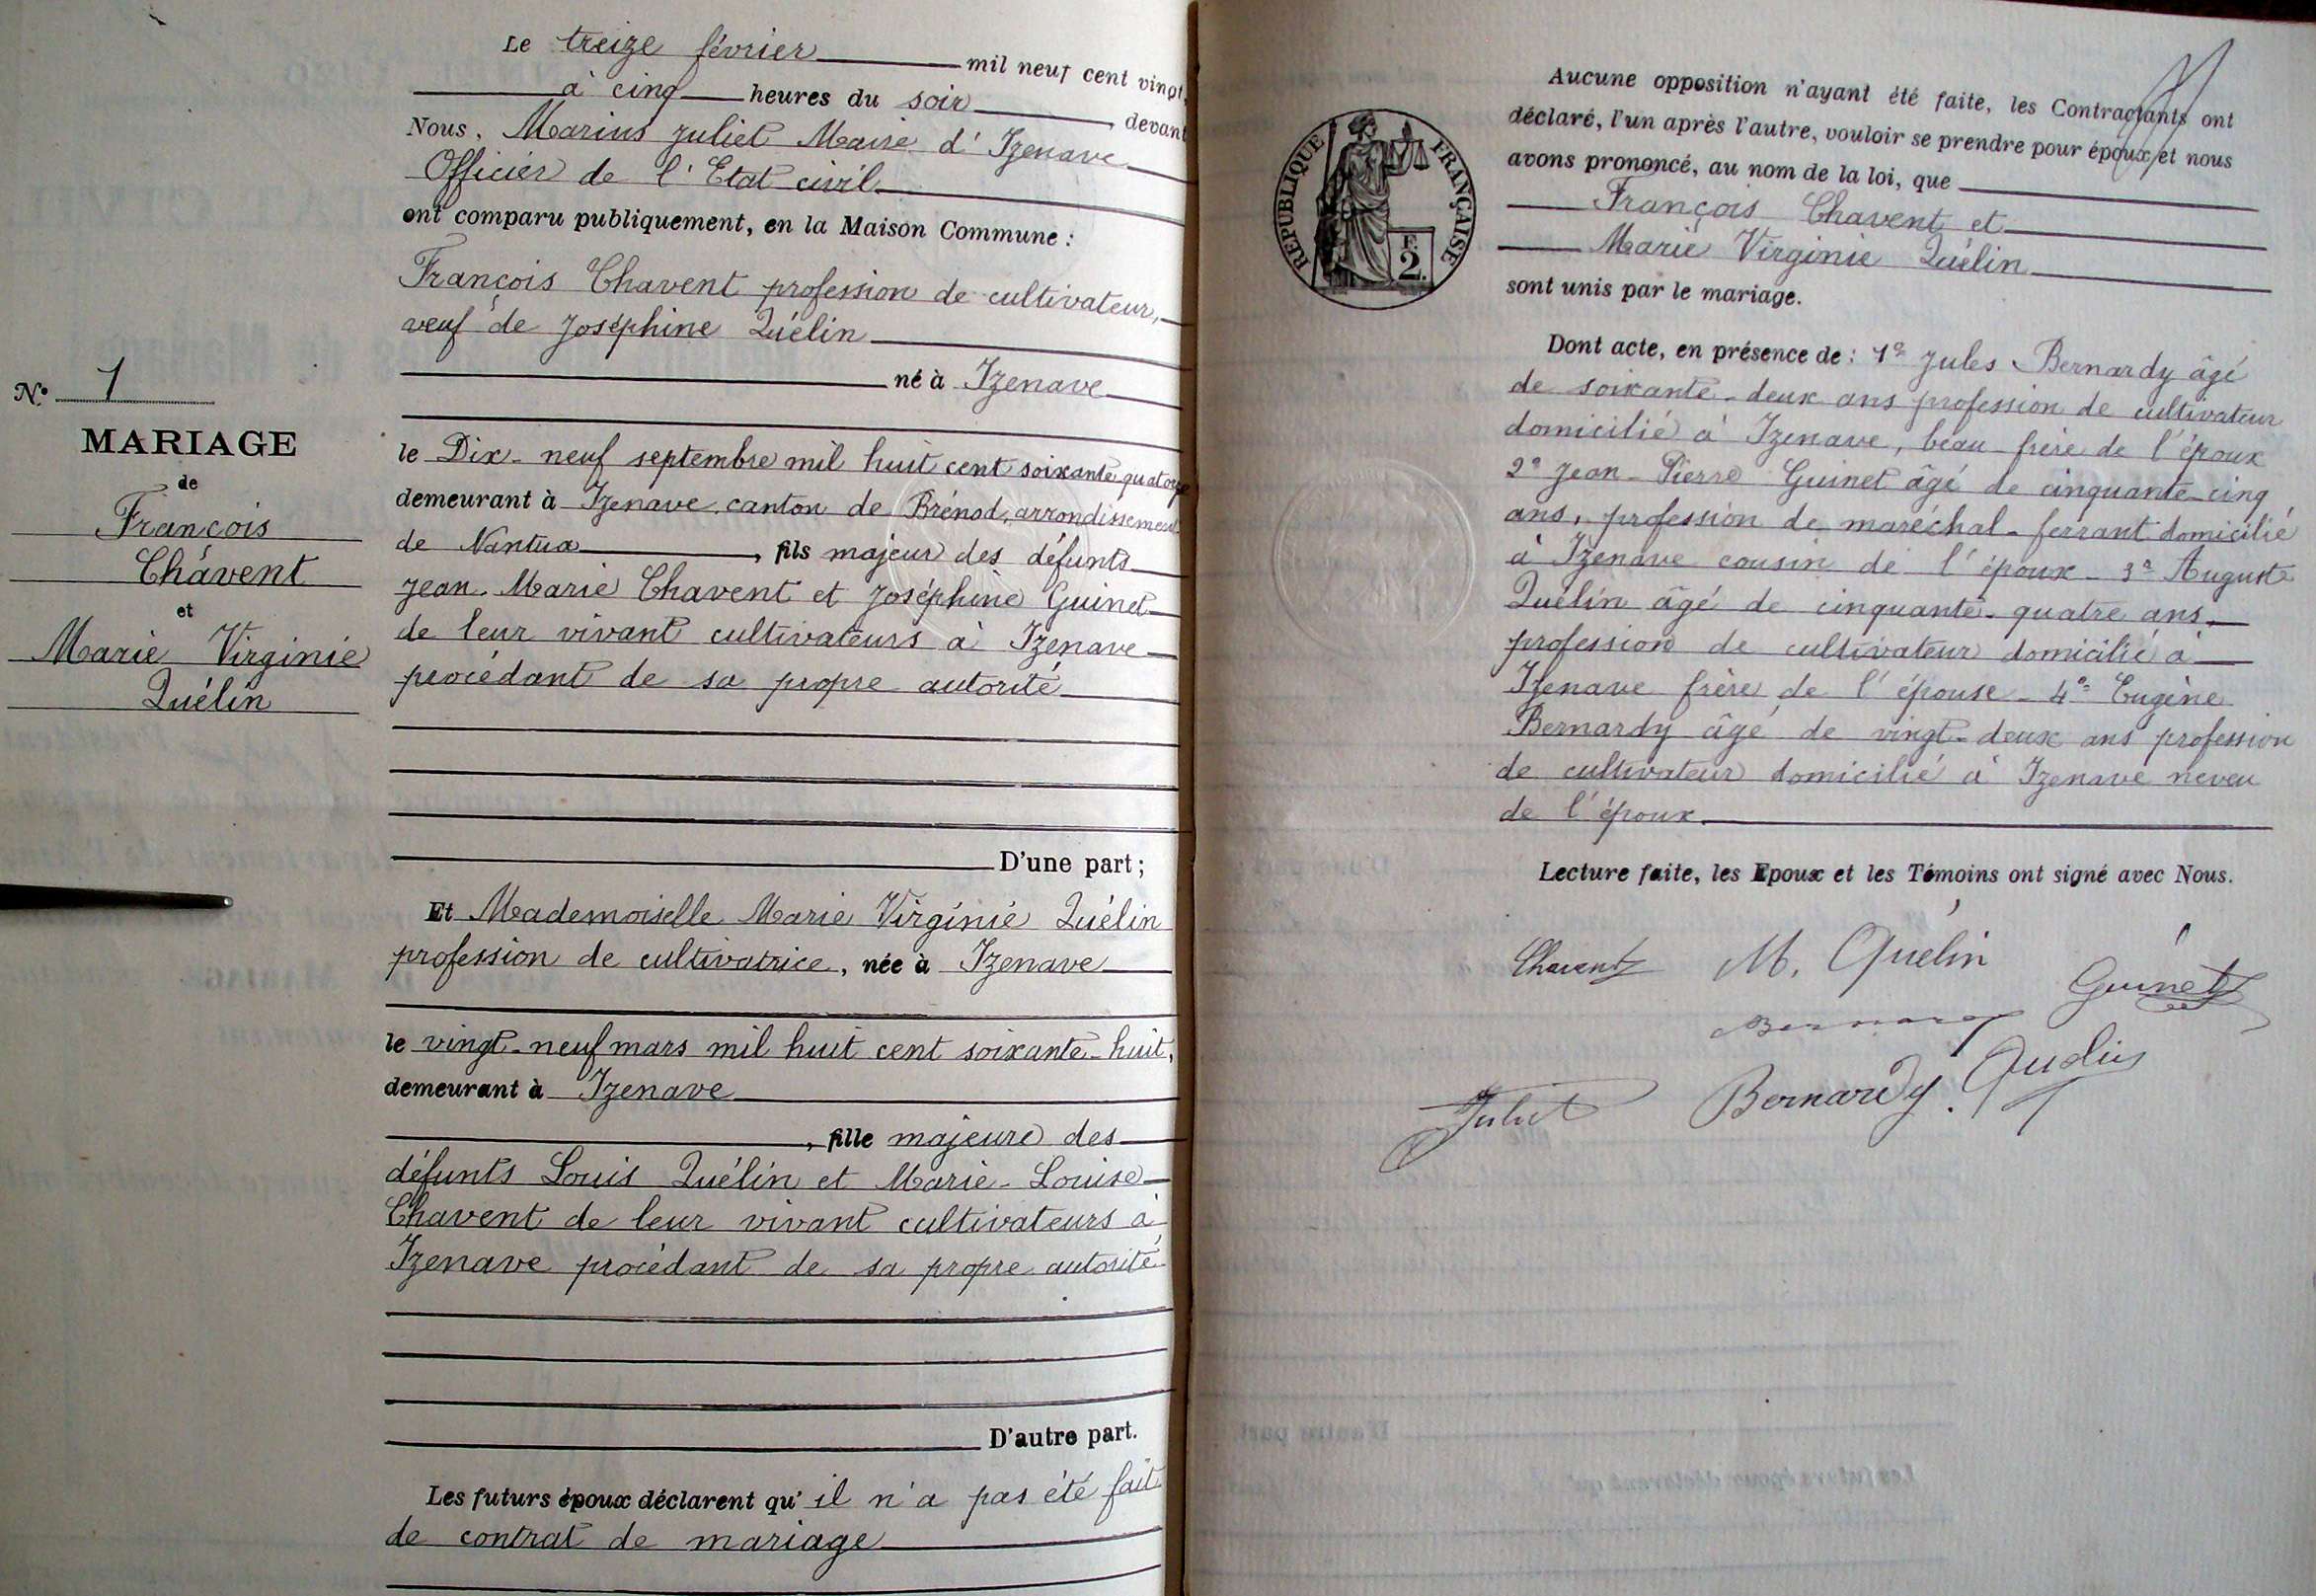 Le treize février mil neuf cent vingt,
à cinq heures du soir, devant
Nous, Marius Juliet Maire d'Izenave
Officier de l'Etat civil
ont comparu publiquement, en la Maison Commune :
François Chavent profession de cultivateur,
veuf de Joséphine Quélin
né à Izenave
le Dix-neuf septembre mil huit cent soixante quatorze
demeurant à Izenave, canton de Brénod, arrondissement
de Nantua, fils majeur des défunts
Jean-Marie Chavent et Joséphine Guinet
de leur vivant cultivateurs à Izenave
procédant de sa propre autorité
N° 1
MARIAGE
de
François
Chavent
et
Marie Virginie
Quélin
D'une part ;
Et Mademoiselle Marie Virginie Quélin
profession de cultivatrice, née à Izenave
le vingt-neuf mars mil huit cent soixante-huit,
demeurant à Izenave
, fille majeure des
défunts Louis Quélin et Marie-Louise
Chavent de leur vivant cultivateurs à
Izenave procédant de sa propre autorité
D'autre part.
Les futurs époux déclarent qu'il n'a pas été fait
de contrat de mariage
RÉPUBLIQUE FRANÇAISE
F.
2.
Aucune opposition n'ayant été faite, les Contractants ont
déclaré, l'un après l'autre, vouloir se prendre pour époux et nous
avons prononcé, au nom de la loi, que
François Chavent et
Marie Virginie Quélin
sont unis par le mariage.
Dont acte, en présence de : 1° Jules Bernardy âgé
de soixante-deux ans profession de cultivateur
domicilié à Izenave, beau-frère de l'époux
2° Jean-Pierre Guinet âgé de cinquante-cinq
ans, profession de maréchal-ferrant domicilié
à Izenave cousin de l'époux - 3° Auguste
Quélin âgé de cinquante-quatre ans
profession de cultivateur domicilié à
Izenave frère de l'épouse - 4° Eugène
Bernardy âgé de vingt-deux ans profession
de cultivateur domicilié à Izenave neveu
de l'époux.
Lecture faite, les Epoux et les Témoins ont signé avec Nous.
Chavent M. Quélin Guinet
Bernardy
Juliet Bernardy. Quélin